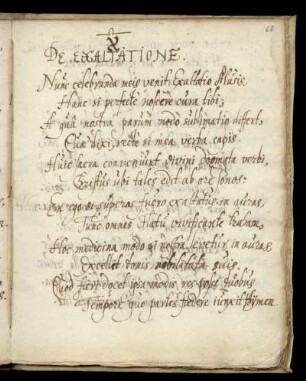 60
DE EXALTATIONE.
Nunc celebranda meis venit Exaltatio Musis,
Hanc si perfecte noscere cura tibi,
A qua nostra parum modo sublimatio differt,
Quae dixi, recte si mea verba capis.
Huic sacra conveniunt divini dogmata verbi,
Christus ubi tales edit ab ore sonos:
ego si superas fuero exaltatus in auras,
Tunc omnes flatu vivificante traham,
Hoc medicina modo si nostra levetur in auras
Excellet donis nobilitata suis.
Quod fieri docet ipsa modus res post duobus
Tempore quo partes foedere iunxit Hymen.